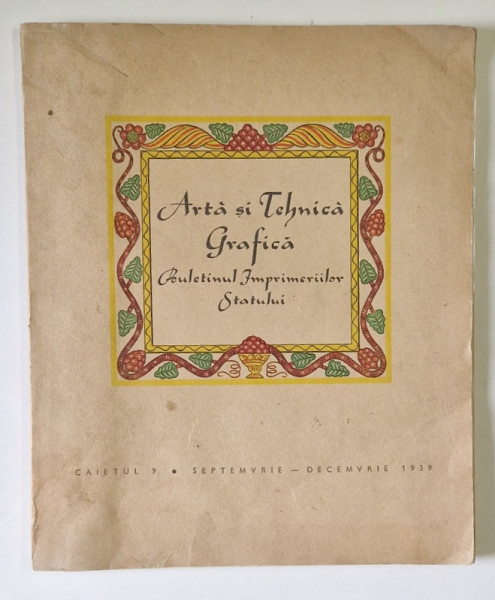 Artă și Tehnică
Grafică
Buletinul Imprimeriilor
Statului
CAIETUL 9 • SEPTEMVRIE — DECEMVRIE 1939